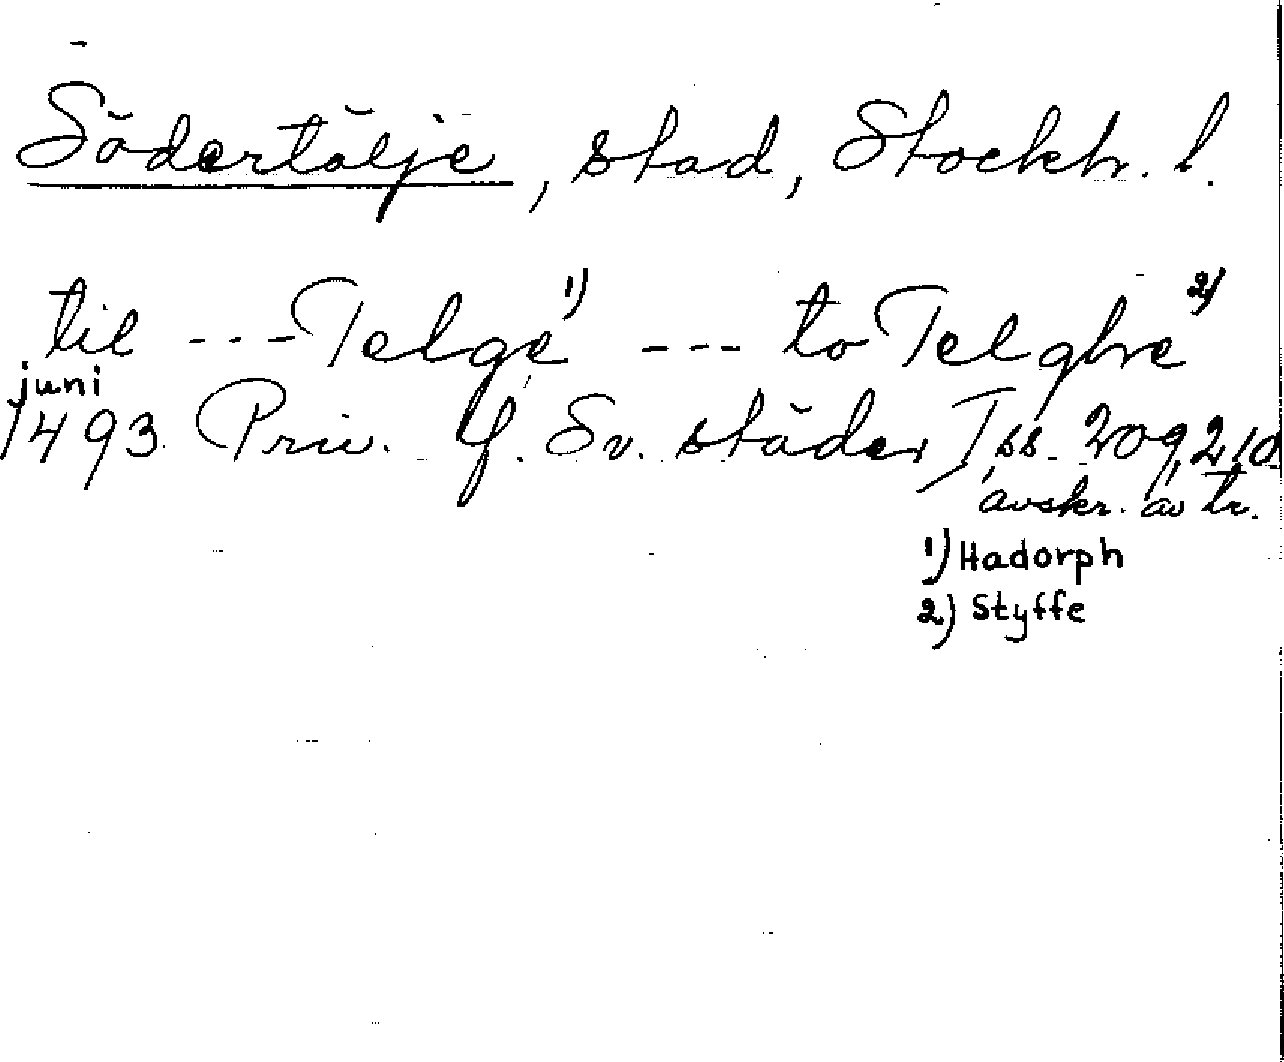 Södertälje, stad, Stockh. l.
til --- Telge 1) --- to Telghe 2)
juni
1493 Priv. f. Sv. städer I, ss. 209, 210
avskr. av tr.
1) Hadorph
2) Styffe